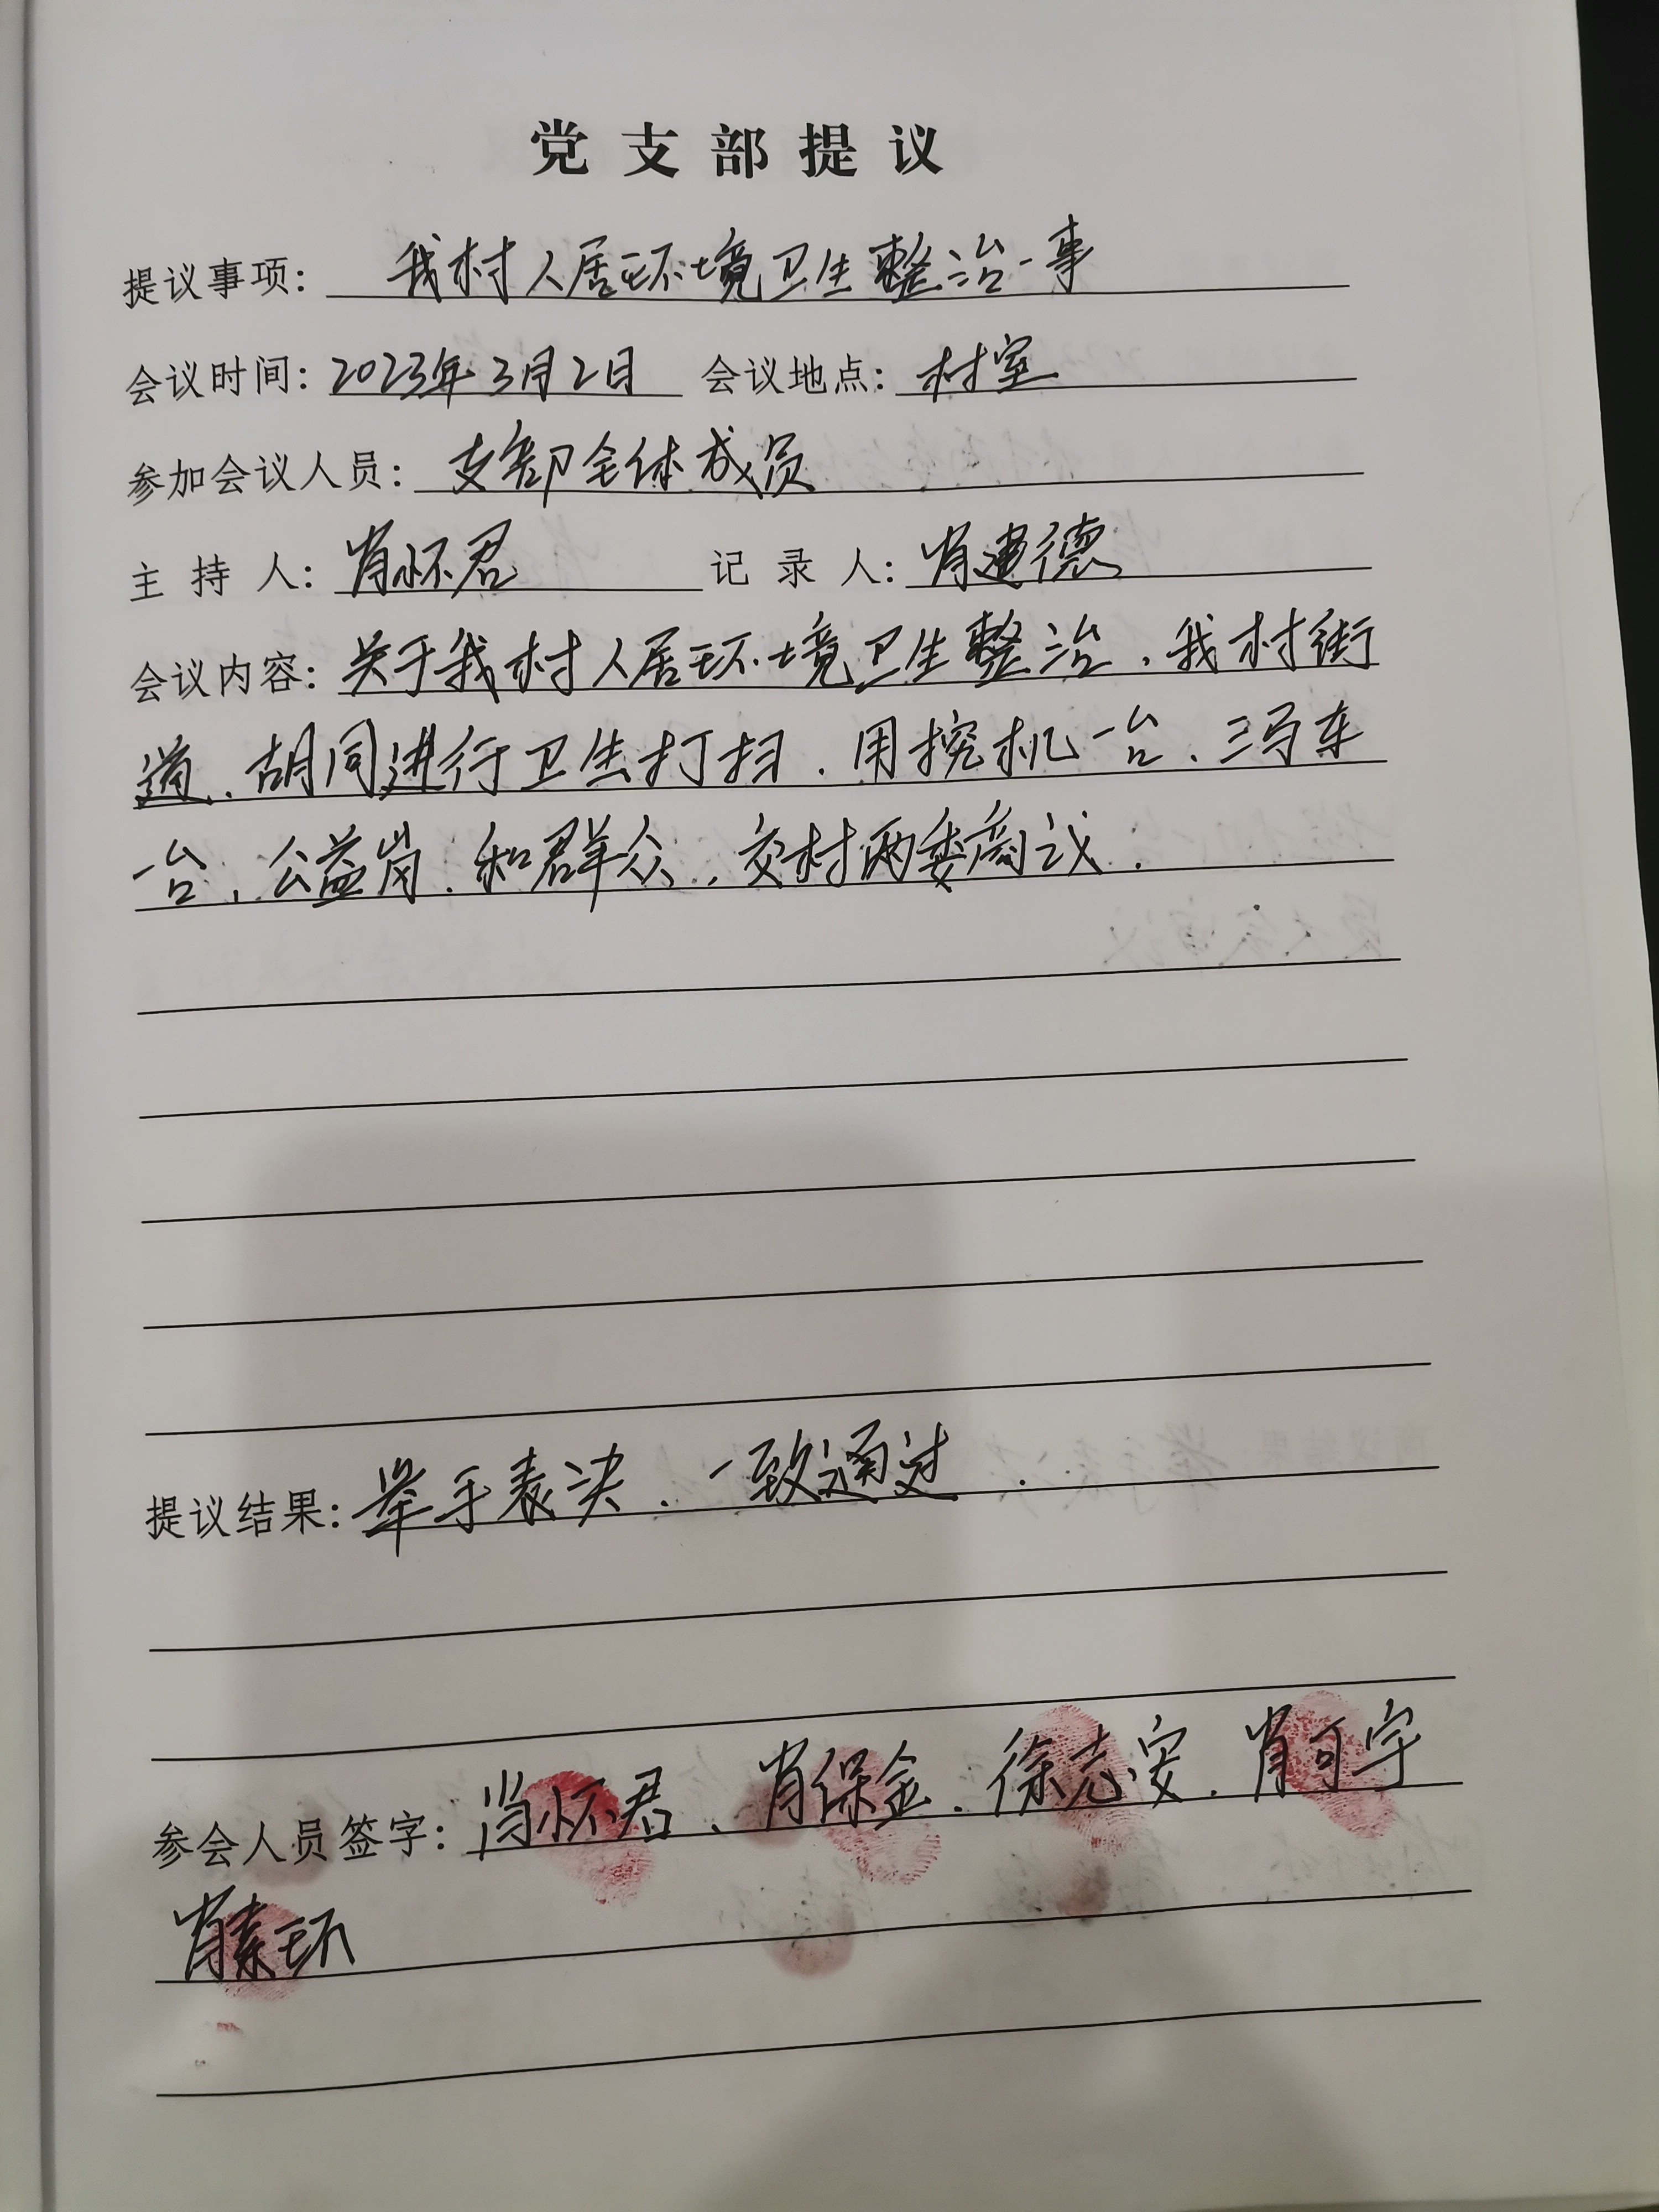 党支部提议
提议事项: 我村人居环境卫生整治一事
会议时间: 2023年3月2日 会议地点: 村室
参加会议人员: 支部全体成员
主持人: 肖怀君 记录人: 肖建德
会议内容: 关于我村人居环境卫生整治、我村街
道、胡同进行卫生打扫.用挖机一台、三马车
一台、公益岗.和群众.交村两委商议.
提议结果: 举手表决.一致通过.
参会人员签字: 肖怀君、肖保金.徐志安.肖可宇
肖素环